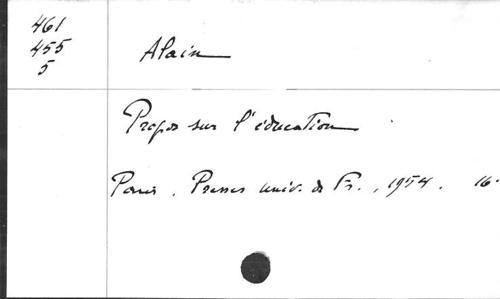 461
455
5
Alain
Propos sur l'éducation
Paris, Presses univ. de Fr., 1954. 16°